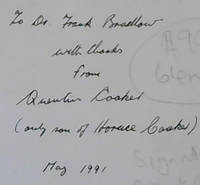 To Dr Frank Bradlow
with thanks
from
Quentin Coaker
(only son of Horace Coaker)
May 1991
$9